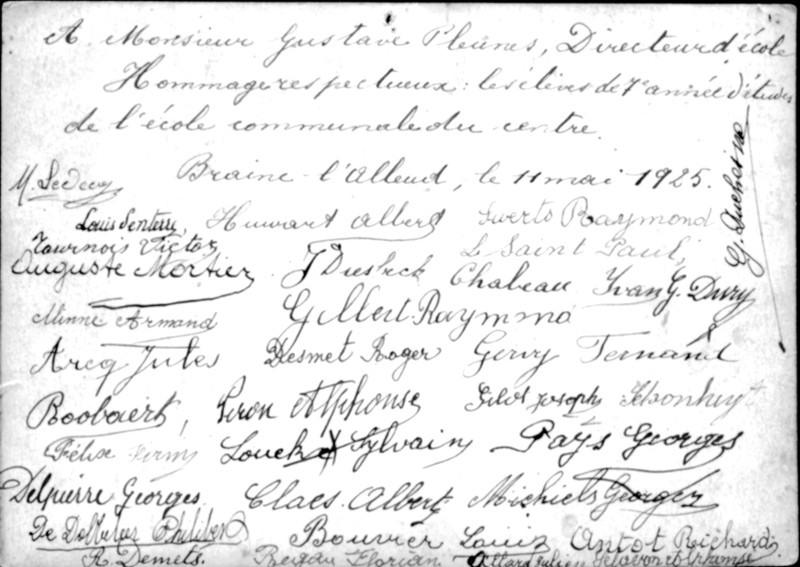 A Monsieur Gustave Pleunes, Directeur d'école
Hommage respectueux : les élèves de 7e année d'études
de l'école communale du centre.
Braine-l'Alleud, le 11 mai 1925.
G. Duchesne
Louis Huwart Albert Swerts Raymond
Tournois Victor Le Saint Paul,
Auguste Mortier J Chabeau Yvan G. Dury
Minne Armand Gilbert Raymond
Arcq Jules Desmet Roger Gervy Fernand
Roobaert, Piron Alphonse Gilot Joseph
Félix Sylvain Pays Georges
Delpierre Georges. Claes. Albert Michiels Georges
De Philibert Bouvier Louis Antot Richard
R. Demets. Florian. Allard Julien